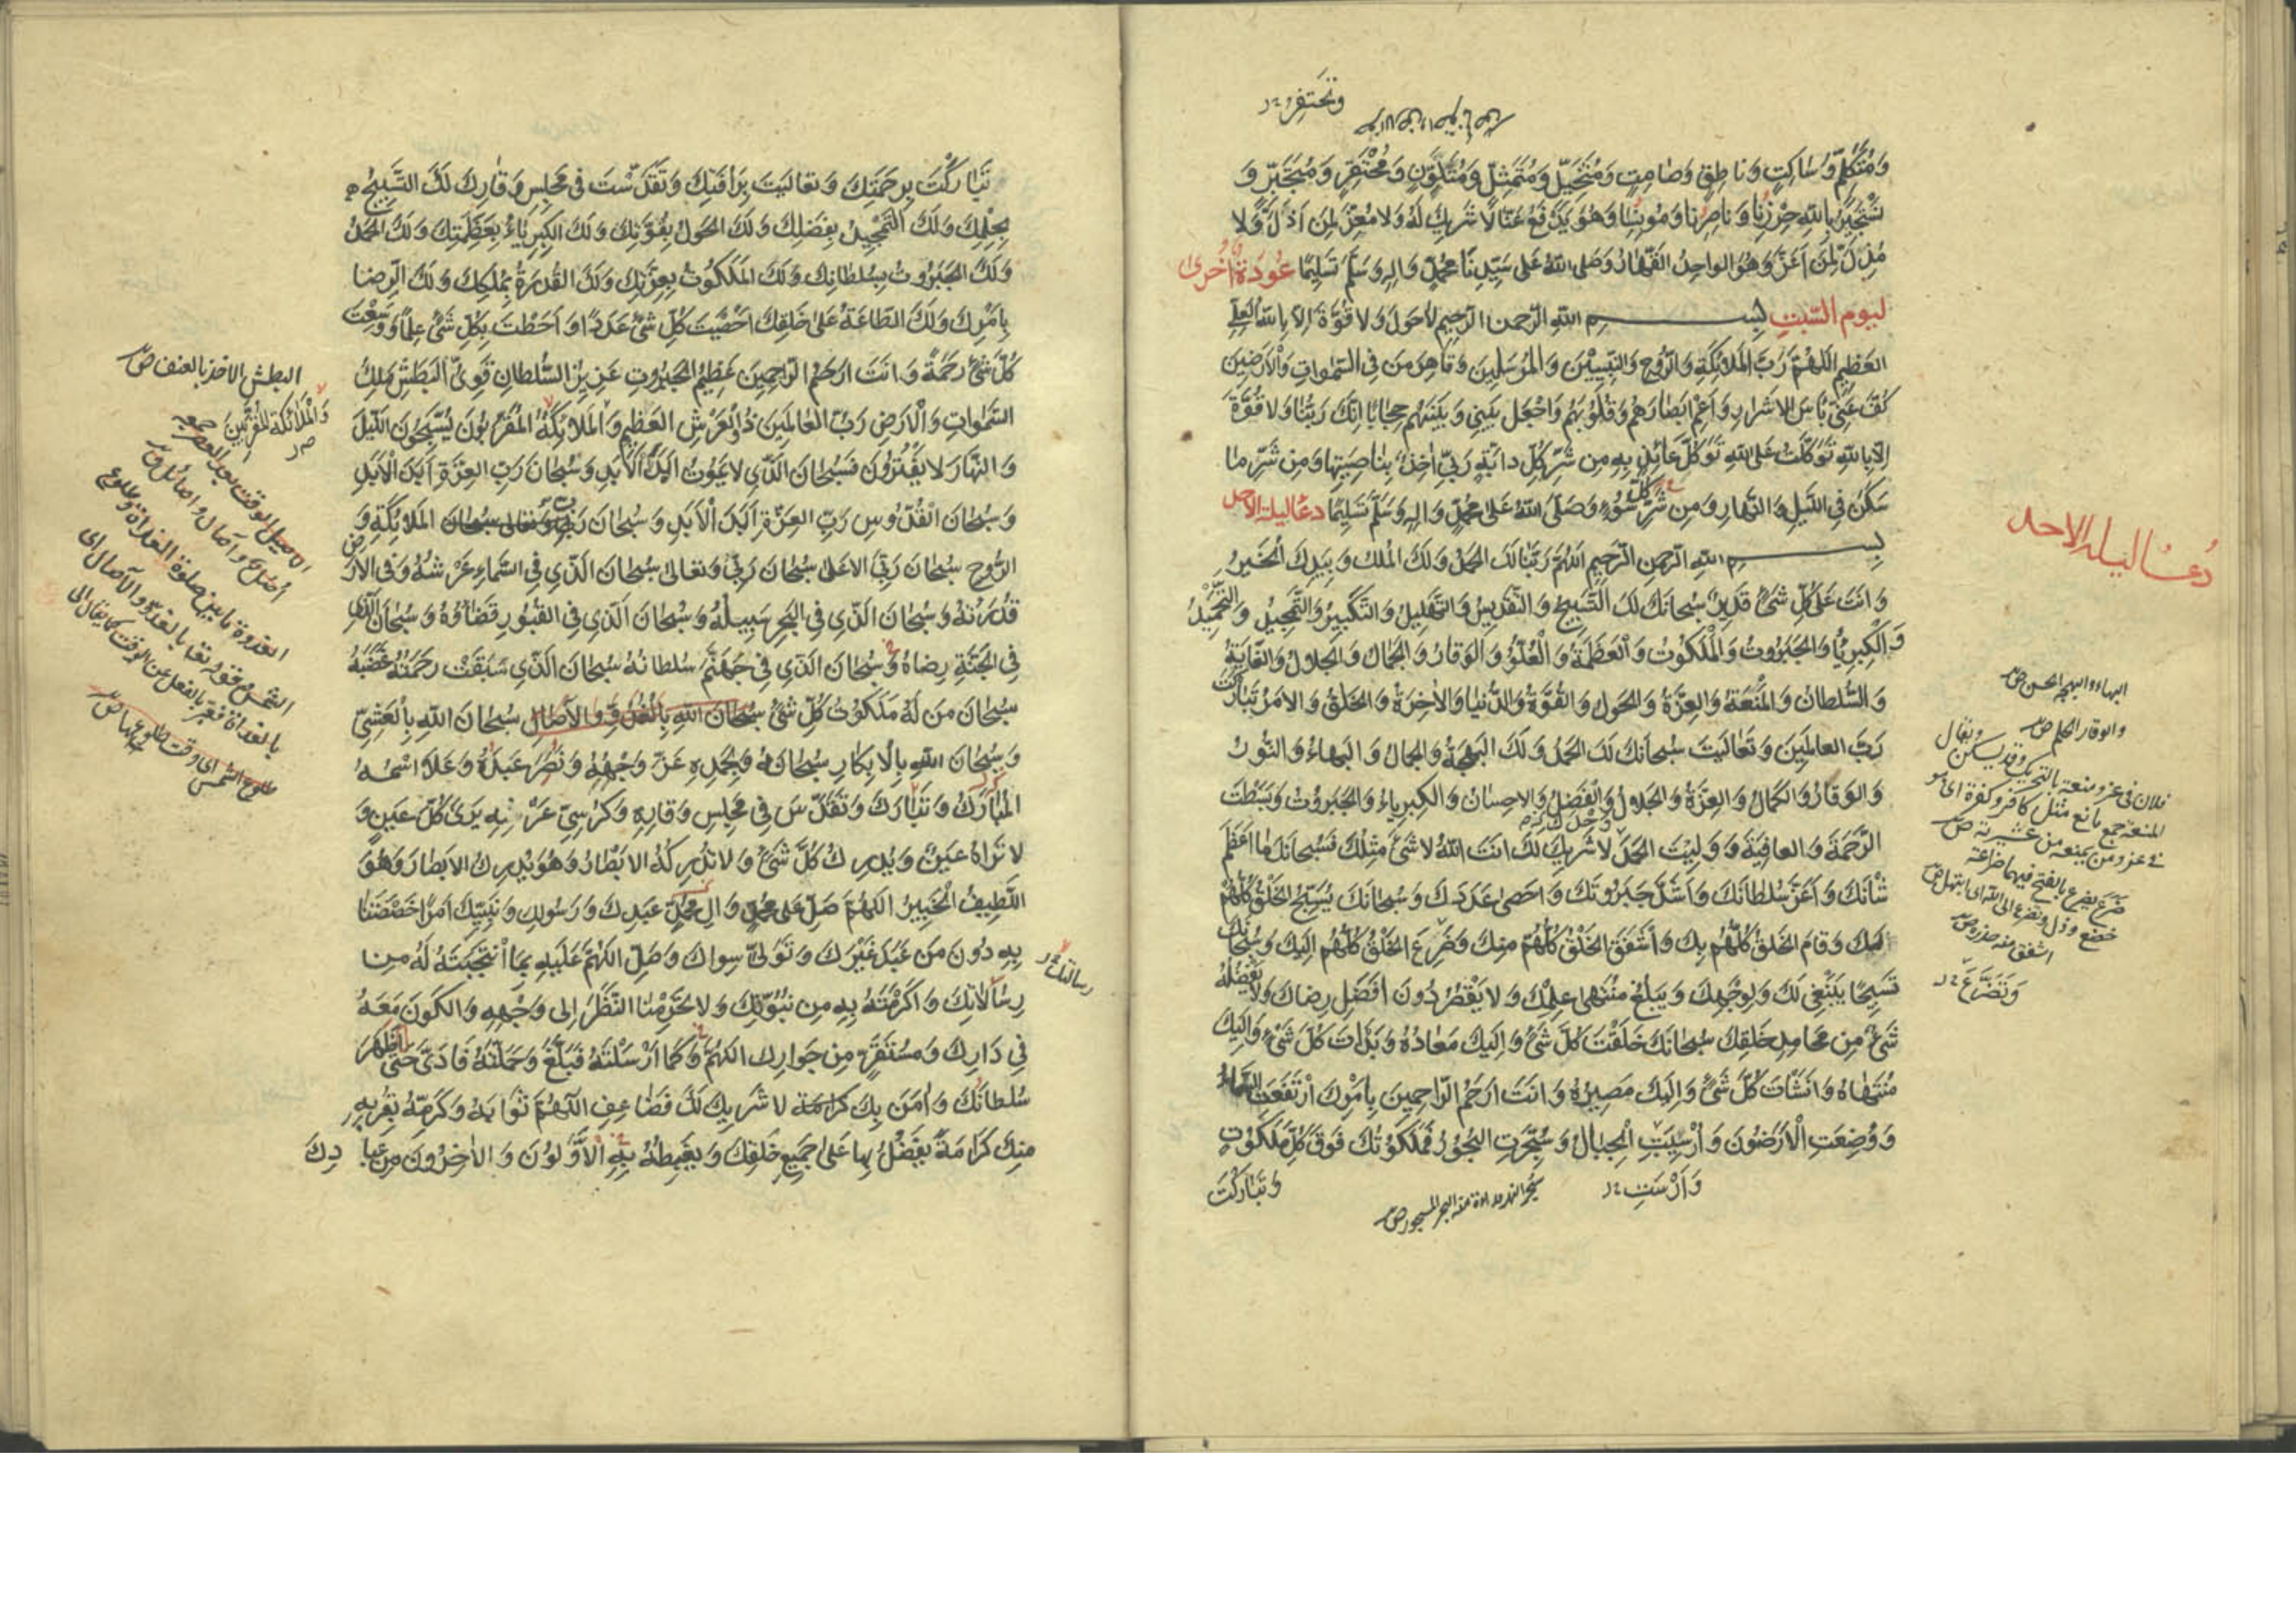 وتحتفر
وَمُتَكَلِّمٍ وَسَاكِتٍ وَنَاطِقٍ وَصَامِتٍ وَمُتَخَيِّلٍ وَمُتَمَثِّلٍ وَمُتَلَوِّنٍ وَمُحْتَفِرٍ وَمُتَجَبِّرٍ وَ
نَسْتَجِيرُ بِاللهِ حِرْزِنَا وَنَاصِرِنَا وَمُونِسِنَا وَهُوَ يَدْفَعُ عَنَّا لَا شَرِيكَ لَهُ وَلَا مُعِزَّ لِمَنْ أَذَلَّ وَلَا
مُذِلَّ لِمَنْ أَعَزَّ وَهُوَ الوَاحِدُ القَهَّارُ وَصَلَى اللهُ عَلَى سَيِّدِنَا مُحَمَّدٍ وَالِهِ وَسَلَّمَ تَسْلِيمًا عُوذَةٌ أُخْرَى
ليوم السَّبت بسم الله الرَّحمن الرَّحيم لَا حَولَ وَلَا قُوَّةَ إِلَّا بِاللهِ العَلِيِّ
العَظِيمِ اللَّهُمَّ رَبَّ المَلَائِكَةِ وَالرُّوحِ وَالنَّبِيِّينَ وَالمُرْسَلِينَ وَقَاهِرَ مَنْ فِي السَّمَوَاتِ وَالأَرَضِينَ
كُفَّ عَنِّي بَأْسَ الاَشْرَارِ وَأَعْمِ أَبْصَارَهُمْ وَقُلُوبَهُمْ وَاجْعَلْ بَيْنِي وَبَيْنَهُمْ حِجَابًا إِنَّكَ رَبُّنَا وَلَا قُوَّةَ
إِلَّا بِاللهِ تَوَكَّلْتُ عَلَى اللهِ تَوَكُّلَ عَائِذٍ بِهِ مِن شَرِّ كُلِّ دَابَّةٍ رَبِّي آخِذٌ بِنَاصِيَتِهَا وَمِن شَرِّ مَا
سَكَنَ فِي اللَّيلِ وَالنَّهَارِ وَمِن شَرِّ كُلِّ سُوءٍ وَصَلَّى اللهُ عَلَى مُحَمَّدٍ وَالِهِ وَسَلَّمَ تَسْلِيمًا دعاء ليلة الاحد
بسم الله الرَّحمن الرَّحيم اللَّهُمَّ رَبَّنَا لَكَ الحَمْدُ وَلَكَ المُلْكُ وَبِيَدِكَ الْخَيْرُ
وَانْتَ عَلَى كُلِّ شَيْءٍ قَدِيرٌ سُبْحَانَكَ لَكَ التَّسْبِيحُ وَالتَّقْدِيسُ وَالتَّهْلِيلُ وَالتَّكْبِيرُ وَالتَّمْجِيدُ وَالتَّحْمِيدُ
وَالْكِبْرِيَاءُ وَالْجَبَرُوتُ وَالْمَلَكُوتُ وَالْعَظَمَةُ وَالْعُلُوُّ وَالوَقَارُ وَالجَمَالُ وَالجَلَالُ وَالغَايَةُ
وَالسُّلطَانُ وَالمَنَعَةُ وَالعِزَّةُ وَالحَولُ وَالقُوَّةُ وَالدُّنْيَا وَالآخِرَةُ وَالخَلقُ وَالاَمْرُ تَبَارَكْتَ
رَبَّ العَالَمِينَ وَتَعَالَيتَ سُبحَانَكَ لَكَ الحَمْدُ وَلَكَ البَهْجَةُ وَالجَمَالُ وَالبَهَاءُ وَالنُّورُ
وَالوَقَارُ وَالكَمَالُ وَالعِزَّةُ وَالجَلَالُ وَالْفَضْلُ وَالاحسَانُ وَالكِبرِيَاءُ وَالجَبَرُوتُ وَبَسَطْتَ
الرَّحْمَةَ وَالعَافِيَةَ وَوَلِيتَ الحَمْدَ لَا شَرِيكَ لَكَ انتَ اللهُ لَا شَيْءَ مِثْلُكَ فَسُبْحَانَكَ مَا اَعْظَمَ
شَأْنَكَ وَاَعَزَّ سُلطَانَكَ وَاَشَدَّ جَبَرُوتَكَ وَاَحصَى عَدَدَكَ وَسُبْحَانَكَ يُسَبِّحُ الخَلْقُ كُلُّهُمْ
لَكَ وَقَامَ الخَلقُ كُلُّهُم بِكَ وَأَشْفَقَ الخَلْقُ كُلُّهُم مِنكَ وَضَرِعَ الخَلْقُ كُلُّهُم اِلَيكَ وَسُبْحَانَكَ
تَسْبِيحًا يَنْبَغِي لَكَ وَلِوَجْهِكَ وَيَبْلُغُ مُنْتَهَى عِلْمِكَ وَلَا يَقْصُرُ دُونَ أَفْضَلِ رِضَاكَ وَلَا يَفْضُلُهُ
شَيْءٌ مِن مَحَامِدِ خَلْقِكَ سُبحَانَكَ خَلَقْتَ كُلَّ شَيْءٍ وَاِلَيكَ مَعَادُهُ وَبَدَأْتَ كُلَّ شَيْءٍ وَاِلَيكَ
مُنْتَهَاهُ وَاَنشَأْتَ كُلَّ شَيْءٍ وَاِلَيكَ مَصِيرُهُ وَاَنتَ اَرحَمُ الرَّاحِمِينَ بِاَمْرِكَ ارْتَفَعَتِ السَّمَاءُ
وَوُضِعَتِ الْأَرَضُونَ وَأُرْسِيَتِ الْجِبَالُ وَسُجِّرَتِ البُحُورُ فَمَلَكُوتُكَ فَوقَ كُلِّ مَلَكُوتٍ
وَتَبَارَكْتَ
دعاء ليلة الاحد
البهاء والبهجة الحسن ص
والوقار الحلم ص
فلان في عز ومنعة بالتحريك وقد يسكن ويقال
المنعة جمع مانع مثل كافر وكفرة اى هو
في عز ومن يمنعه من عشيرته ص
ضرع يضرع بالفتح فيهما ضراعة
خضع وذل وتضرع الى الله اى ابتهل ص
اشفق منه حذر ص
وَتَضَرَّعَ
تَبَارَكْتَ بِرَحْمَتِكَ وَتَعَالَيتَ بِرَأفَتِكَ وَتَقَدَّسْتَ فِي مَجْلِسِ وَقَارِكَ لَكَ التَّسْبِيحُ
بِحِلْمِكَ وَلَكَ التَّمْجِيدُ بِفَضْلِكَ وَلَكَ الحَولُ بِقُوَّتِكَ وَلَكَ الكِبْرِيَاءُ بِعَظَمَتِكَ وَلَكَ الحَمْدُ
وَلَكَ الجَبَرُوتُ بِسُلطَانِكَ وَلَكَ المَلَكُوتُ بِعِزَّتِكَ وَلَكَ القُدرَةُ بِمُلكِكَ وَلَكَ الرِّضَا
بِاَمْرِكَ وَلَكَ الطَّاعَةُ عَلَى خَلقِكَ اَحْصَيْتَ كُلَّ شَيْءٍ عَدَدًا وَاَحَطْتَ بِكُلِّ شَيْءٍ عِلمًا وَوَسِعْتَ
كُلَّ شَيْءٍ رَحْمَةً وَاَنتَ اَرحَمُ الرَّاحِمِينَ عَظِيمُ الجَبَرُوتِ عَزِيزُ السُّلطَانِ قَوِيُّ البَطْشِ مَلِكُ
السَّمَوَاتِ وَالْاَرضِ رَبُّ العَالَمِينَ ذُو العَرْشِ العَظِيمِ وَالمَلَائِكَةُ المُقَرَّبُونَ يُسَبِّحُونَ اللَّيلَ
وَالنَّهَارَ لَا يَفْتُرُونَ فَسُبْحَانَ الَّذِي لَا يَمُوتُ اَبَدَ الْاَبَدِ وَسُبحَانَ رَبِّ العِزَّةِ اَبَدَ الْاَبَدِ
وَسُبحَانَ القُدُّوسِ رَبِّ العِزَّةِ اَبَدَ الْاَبَدِ وَسُبحَانَ رَبِّ المَلَائِكَةِ وَ
الرُّوحِ سُبحَانَ رَبِّيَ الاَعلَى سُبحَانَ رَبِّي وَتَعَالَى سُبحَانَ الَّذِي فِي السَّمَاءِ عَرْشُهُ وَفِي الاَرْضِ
قُدرَتُهُ وَسُبحَانَ الَّذِي فِي البَحرِ سَبِيلُهُ وَسُبحَانَ الَّذِي فِي القُبُورِ قَضَاؤُهُ وَسُبحَانَ الَّذِي
فِي الجَنَّةِ رِضَاهُ وَسُبحَانَ الَّذِي فِي جَهَنَّمَ سُلطَانُهُ سُبحَانَ الَّذِي سَبَقَتْ رَحْمَتُهُ غَضَبَهُ
سُبحَانَ مَن لَهُ مَلَكُوتُ كُلِّ شَيْءٍ سُبحَانَ اللهِ بِالغُدُوِّ وَالآصَالِ سُبحَانَ اللهِ بِالْعَشِيِّ
وَسُبحَانَ اللهِ بِالْاِبكَارِ سُبحَانَهُ وَبِحَمْدِهِ عَزَّ وَجْهُهُ وَنَصَرَ عَبدَهُ وَعَلَا اسْمُهُ
المُبَارَكُ وَتَبَارَكَ وَتَقَدَّسَ فِي مَجْلِسِ وَقَارِهِ وَكُرْسِيِّ عَرْشِهِ يَرَى كُلَّ عَينٍ وَ
لَا تَرَاهُ عَينٌ وَيُدرِكُ كُلَّ شَيْءٍ وَلَا تُدرِكُهُ الاَبْصَارُ وَهُوَ يُدرِكُ الاَبصَارَ وَهُوَ
اللَّطِيفُ الْخَبِيرُ اللَّهُمَّ صَلِّ عَلَى مُحَمَّدٍ وَآلِ مُحَمَّدٍ عَبدِكَ وَرَسُولِكَ وَنَبِيِّكَ اَمْرًا خَصَصْتَنَا
بِهِ دُونَ مَن عَبَدَ غَيْرَكَ وَتَوَلَّى سِوَاكَ وَصَلِّ اللَّهُمَّ عَلَيهِ بِمَا انْتَجَبْتَهُ لَهُ مِن
رِسَالَاتِكَ وَاَكرَمْتَهُ بِهِ مِن نُبُوَّتِكَ وَلَا تَحْرِمْنَا النَّظَرَ اِلَى وَجْهِهِ وَالكَونَ مَعَهُ
فِي دَارِكَ وَمُسْتَقَرٍّ مِن جِوَارِكَ اللَّهُمَّ وَكَمَا اَرْسَلْتَهُ فَبَلَّغَ وَحَمَّلْتَهُ فَاَدَّى حَتَّى اَظْهَرَ
سُلطَانَكَ وَآمَنَ بِكَ لَا شَرِيكَ لَكَ فَضَاعِفِ اللَّهُمَّ ثَوَابَهُ وَكَرِّمْهُ بِقُربِهِ
مِنكَ كَرَامَةً يَفْضُلُ بِهَا عَلَى جَمِيعِ خَلقِكَ وَيَغْبِطُهُ بِهِ الْاَوَّلُونَ وَالآخِرُونَ مِن عِبَادِكَ
رسالتك
البطش الاخذ بالعنف ص
وَالْمَلَائِكَةِ الْمُقَرَّبِينَ
الاصيل الوقت بعد العصر جمعه
أُصُل وآصال واصائل
الغدوة ما بين صلوة الغداة وطلوع
الشمس قوله تعا بالغدو والآصال اى
بالغداة فعبر بالفعل عن الوقت كما يقال
طلوع الشمس اى وقت طلوعها ص